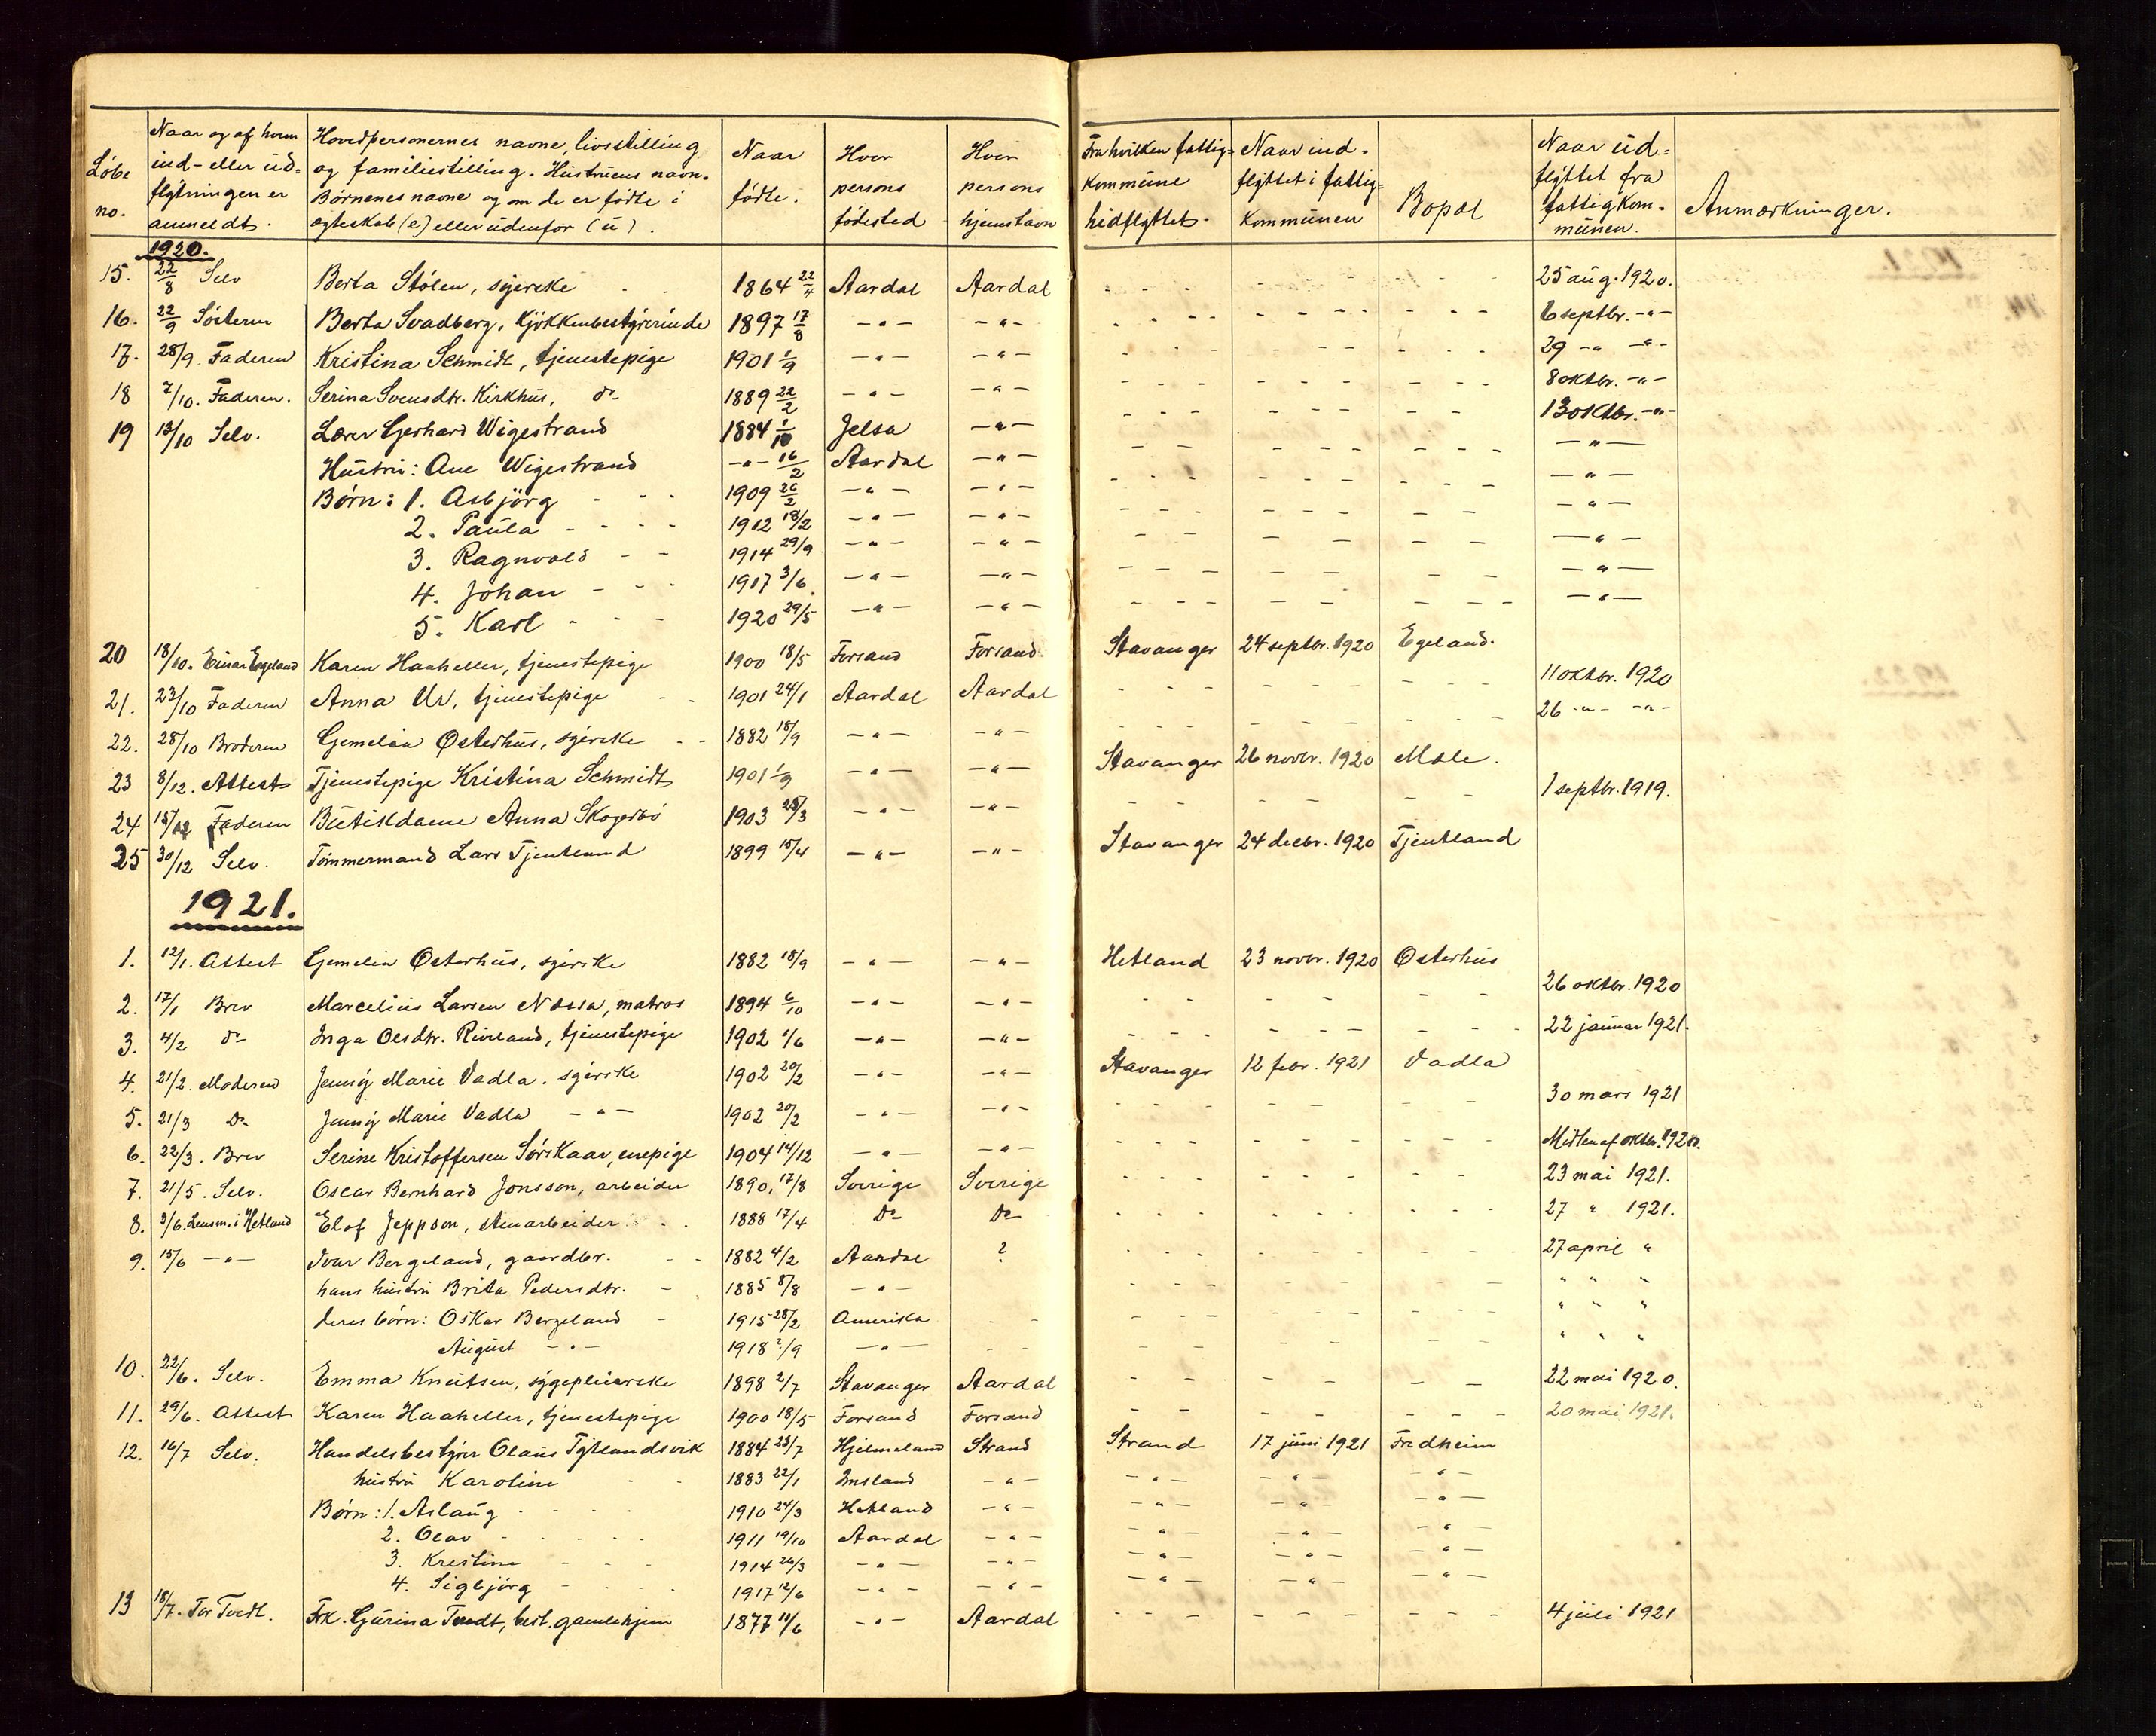 Løbe no. | Naar og af hvem ind- eller ud-flytningen er anmeldt. | Hovedpersonernes navne, livsstilling og familiestilling. Hustruens navn. Børnenes navne og om de er fødte i ægteskab (e) eller udenfor (u). | Naar fødte. | Hver persons fødested | Hver persons hjemstavn | Fra hvilken fattig-kommune hidflyttet. | Naar ind-flyttet i fattig-kommunen | Bopæl | Naar ud-flyttet fra fattigkom-munen. | Anmærkninger.
1920.
15. | 22/8 Selv | Berta Stølen, syerske | 1864 22/4 | Aardal | Aardal | - - - | - - - | - - | 25 aug. 1920.
16. | 22/9 Søsteren | Berta Svadberg, Kjøkkenbestyrerinde | 1897 17/8 | -"- | -"- | - - - | - - - | - - - | 6 septbr. -"-
17. | 28/9. Faderen | Kristina Schmidt, tjenestepige | 1901 1/9 | -"- | -"- | - - - | - - - | - - - | 29 -"- -"-
18 | 7/10. Faderen. | Serina Svensdtr. Kirkhus, do | 1889 22/2 | -"- | -"- | - - - | - - - | - - - | 8 oktbr. -"-
19 | 13/10 Selv. | Lærer Gerhard Wigestrand | 1884 1/10 | Jelsa | -"- | - - - | - - - | - - | 13 oktbr. -"-
Hustru: Ane Wigestrand | -"- 16/2 | Aardal | -"- | - - - | - - - | - - - | -"-
Børn: 1. Asbjørg - - - | 1909 26/2 | -"- | -"- | - - - | - - - | - - - | -"-
2. Paula - - - - | 1912 18/2 | -"- | -"- | - - - | - - - | - - | -"-
3. Ragnvald - - | 1914 29/9 | -"- | -"- | - - - | - - - | - - | -"-
4. Johan - - - | 1917 3/6. | -"- | -"- | - - - | - - - | - - | -"-
5. Karl - - - | 1920 29/5 | -"- | -"- | - - - | - - - | - - - | -"-
20 | 18/10. Einar Egeland | Karen Haaheller, tjenestepige | 1900 18/5 | Forsand | Forsand | Stavanger | 24 septbr. 1920 | Egeland.
21. | 23/10 Faderen | Anna Ur, tjenestepige - | 1901 24/1 | Aardal | Aardal | - - - | - - - | - - - | 11 oktbr. 1920
22. | 28/10 Broderen | Gemelia Østerhus, syerske - - | 1882 18/9 | -"- | -"- | - - - | - - - | - - - | 26 -"- -"-
23 | 8/12. Attest | Tjenestepige Kristina Schmidt | 1901 1/9 | -"- | -"- | Stavanger | 26 novbr. 1920 | Mæle.
24 | 15/12 Faderen | Butikdame Anna Skogerbø | 1903 25/3 | -"- | -"- | - - - | - - | - - | 1 septbr. 1919.
25 | 30/12 Selv. | Tømmermand Lars Tjentland | 1899 15/4 | -"- | -"- | Stavanger | 24 decbr. 1920 | Tjentland
1921.
1. | 12/1. Attest | Gemelia Østerhus, syerske | 1882 18/9 | -"- | -"- | Hetland | 23 novbr. 1920 | Østerhus
2. | 17/1 Brev | Marcelius Larsen Nessa, matros | 1894 6/10 | -"- | -"- | - - - | - - | - - | 26 oktbr. 1920
3. | 4/2 do | Inga Olsdtr. Riveland, tjenestepige | 1902 1/6 | -"- | -"- | - - - | - - - | - - - | 22 januar 1921.
4. | 21/2. Moderen | Jenny Marie Vadla. syerske | 1902 20/2 | -"- | -"- | Stavanger | 12 febr. 1921 | Vadla
5. | 21/3 Do | Jenny Marie Vadla -"- | 1902 20/2 | -"- | -"- | - - - | - - - | - - | 30 mars 1921
6. | 22/3. Brev | Serine Kristoffersen Sørskaar, enepige | 1904 14/12 | -"- | -"- | - - - | - - - | - - - | Midten af oktbr. 1920.
7. | 21/5. Selv. | Oscar Bernhard Jonsson, arbeider | 1890, 17/8 | Sverige | Sverige | - - - | - - - | - - - | 23 mai 1921.
8. | 3/6. Lensm. i Hetland | Elof Jeppson, stenarbeider | 1888 17/4 | Do | Do | - - - | - - - | - - - | 27 " 1921.
9. | 15/6 -"- | Ivar Bergeland, gaardbr. - - | 1882 4/2 | Aardal | ? | - - - | - - - | - - - | 27 april "
hans hustru Brita Pedersdtr. - | 1885 8/8 | -"- | | - - - | - - - | - - - | " " "
deres børn: Oskar Bergeland - | 1915 28/2 | Amerika | - - | - - - | - - - | - - - | " " "
August -"- | 1918 2/9 | -"- | - - | - - | - - - | - - - | " " "
10. | 22/6. Selv. | Emma Knutsen, sygepleierske | 1898 2/7 | Stavanger | Aardal | - - | - - - | - - | 22 mai 1920.
11. | 29/6. Attest | Karen Haaheller, tjenestepige | 1900 18/5 | Forsand | Forsand | - - | - - - | - - - | 20 mai 1921.
12. | 16/7 Selv. | Handelsbestyrer Olaus Tytlandsvik | 1884 23/7 | Hjelmeland | Strand | Strand | 17 juni 1921 | Fredheim
hustru Karoline - - | 1883 22/1 | Imsland | -"- | -"- | -"- | -"-
Børn: 1. Aslaug - - - - | 1910 24/3 | Hetland | -"- | -"- | -"- | -"-
2. Olav - - - - | 1911 19/10 | Aardal | -"- | -"- | -"- | -"-
3. Kristine - - - | 1914 26/3 | -"- | -"- | -"- | -"- | -"-
4. Sigbjørg - - - | 1917 12/6 | -"- | -"- | -"- | -"- | -"-
13 | 18/7. Tor Tvedt. | Frk. Gurina Tvedt, best. gamlehjem | 1877 11/6 | -"- | Aardal | - - - | - - - | - - - | 4 juli 1921